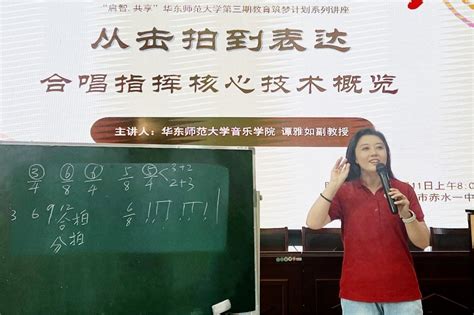 “启智 共享”华东师范大学第三期教育筑梦计划系列讲座
从击拍到表达
合唱指挥核心技术概览
主讲人：华东师范大学音乐学院 谭雅如副教授
11日上午8:0
市赤水一中
3/4 6/8 6/4 5/8 5/4 3+2
2+3
3 6 9 12 6/8
合拍
分拍